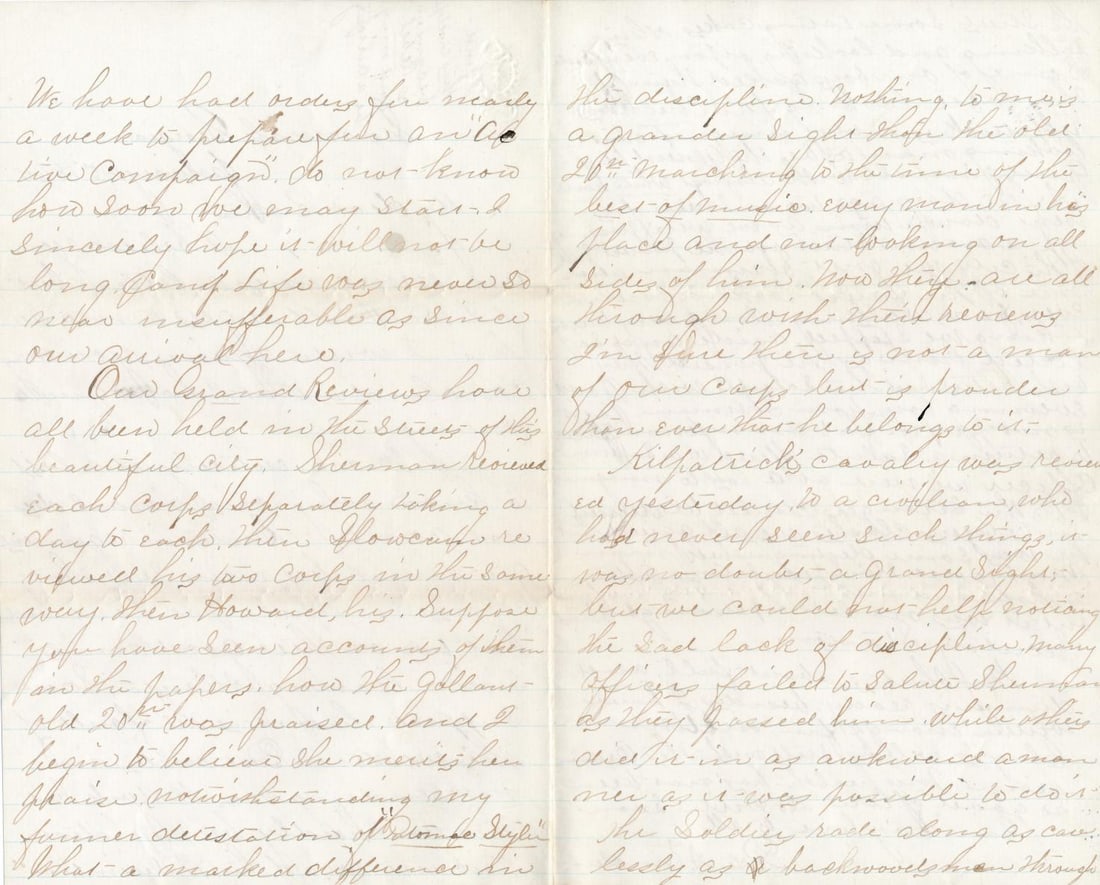 We have had orders for nearly
a week to prepare for an "Ac
tive Campaign". do not know
how soon we may start. I
sincerely hope it will not be
long Camp Life was never so
near insufferable as since
our arrival here.
Our Grand Reviews have
all been held in the streets of this
beautiful city. Sherman reviewed
each corps separately taking a
day to each. Then Slowcum re
viewed his two corps in the same
way. then Howard, his. Suppose
you have seen accounts of them
in the papers. how the gallant
old 20th was praised. and I
begin to believe she merits her
praise notwithstanding my
former detestation of "Potomac Style"
What a marked difference in
the discipline. Nothing, to me, is
a grander sight than the old
20th marching to the time of the
best of music. every man in his
place and not looking on all
sides of him. Now they are all
through with their reviews
I'm sure there is not a man
of our corps but is prouder
than ever that he belongs to it.
Kilpatrick's cavalry was review
ed yesterday. to a civilian, who
had never seen such things, it
was no doubt, a grand sight,
but we could not help noticing
the sad lack of discipline. Many
officers failed to salute Sherman
as they passed him, while others
did it in as awkward a man
ner as it was possible to do it
The soldiers rode along as care
lessly as a backwoodsman through